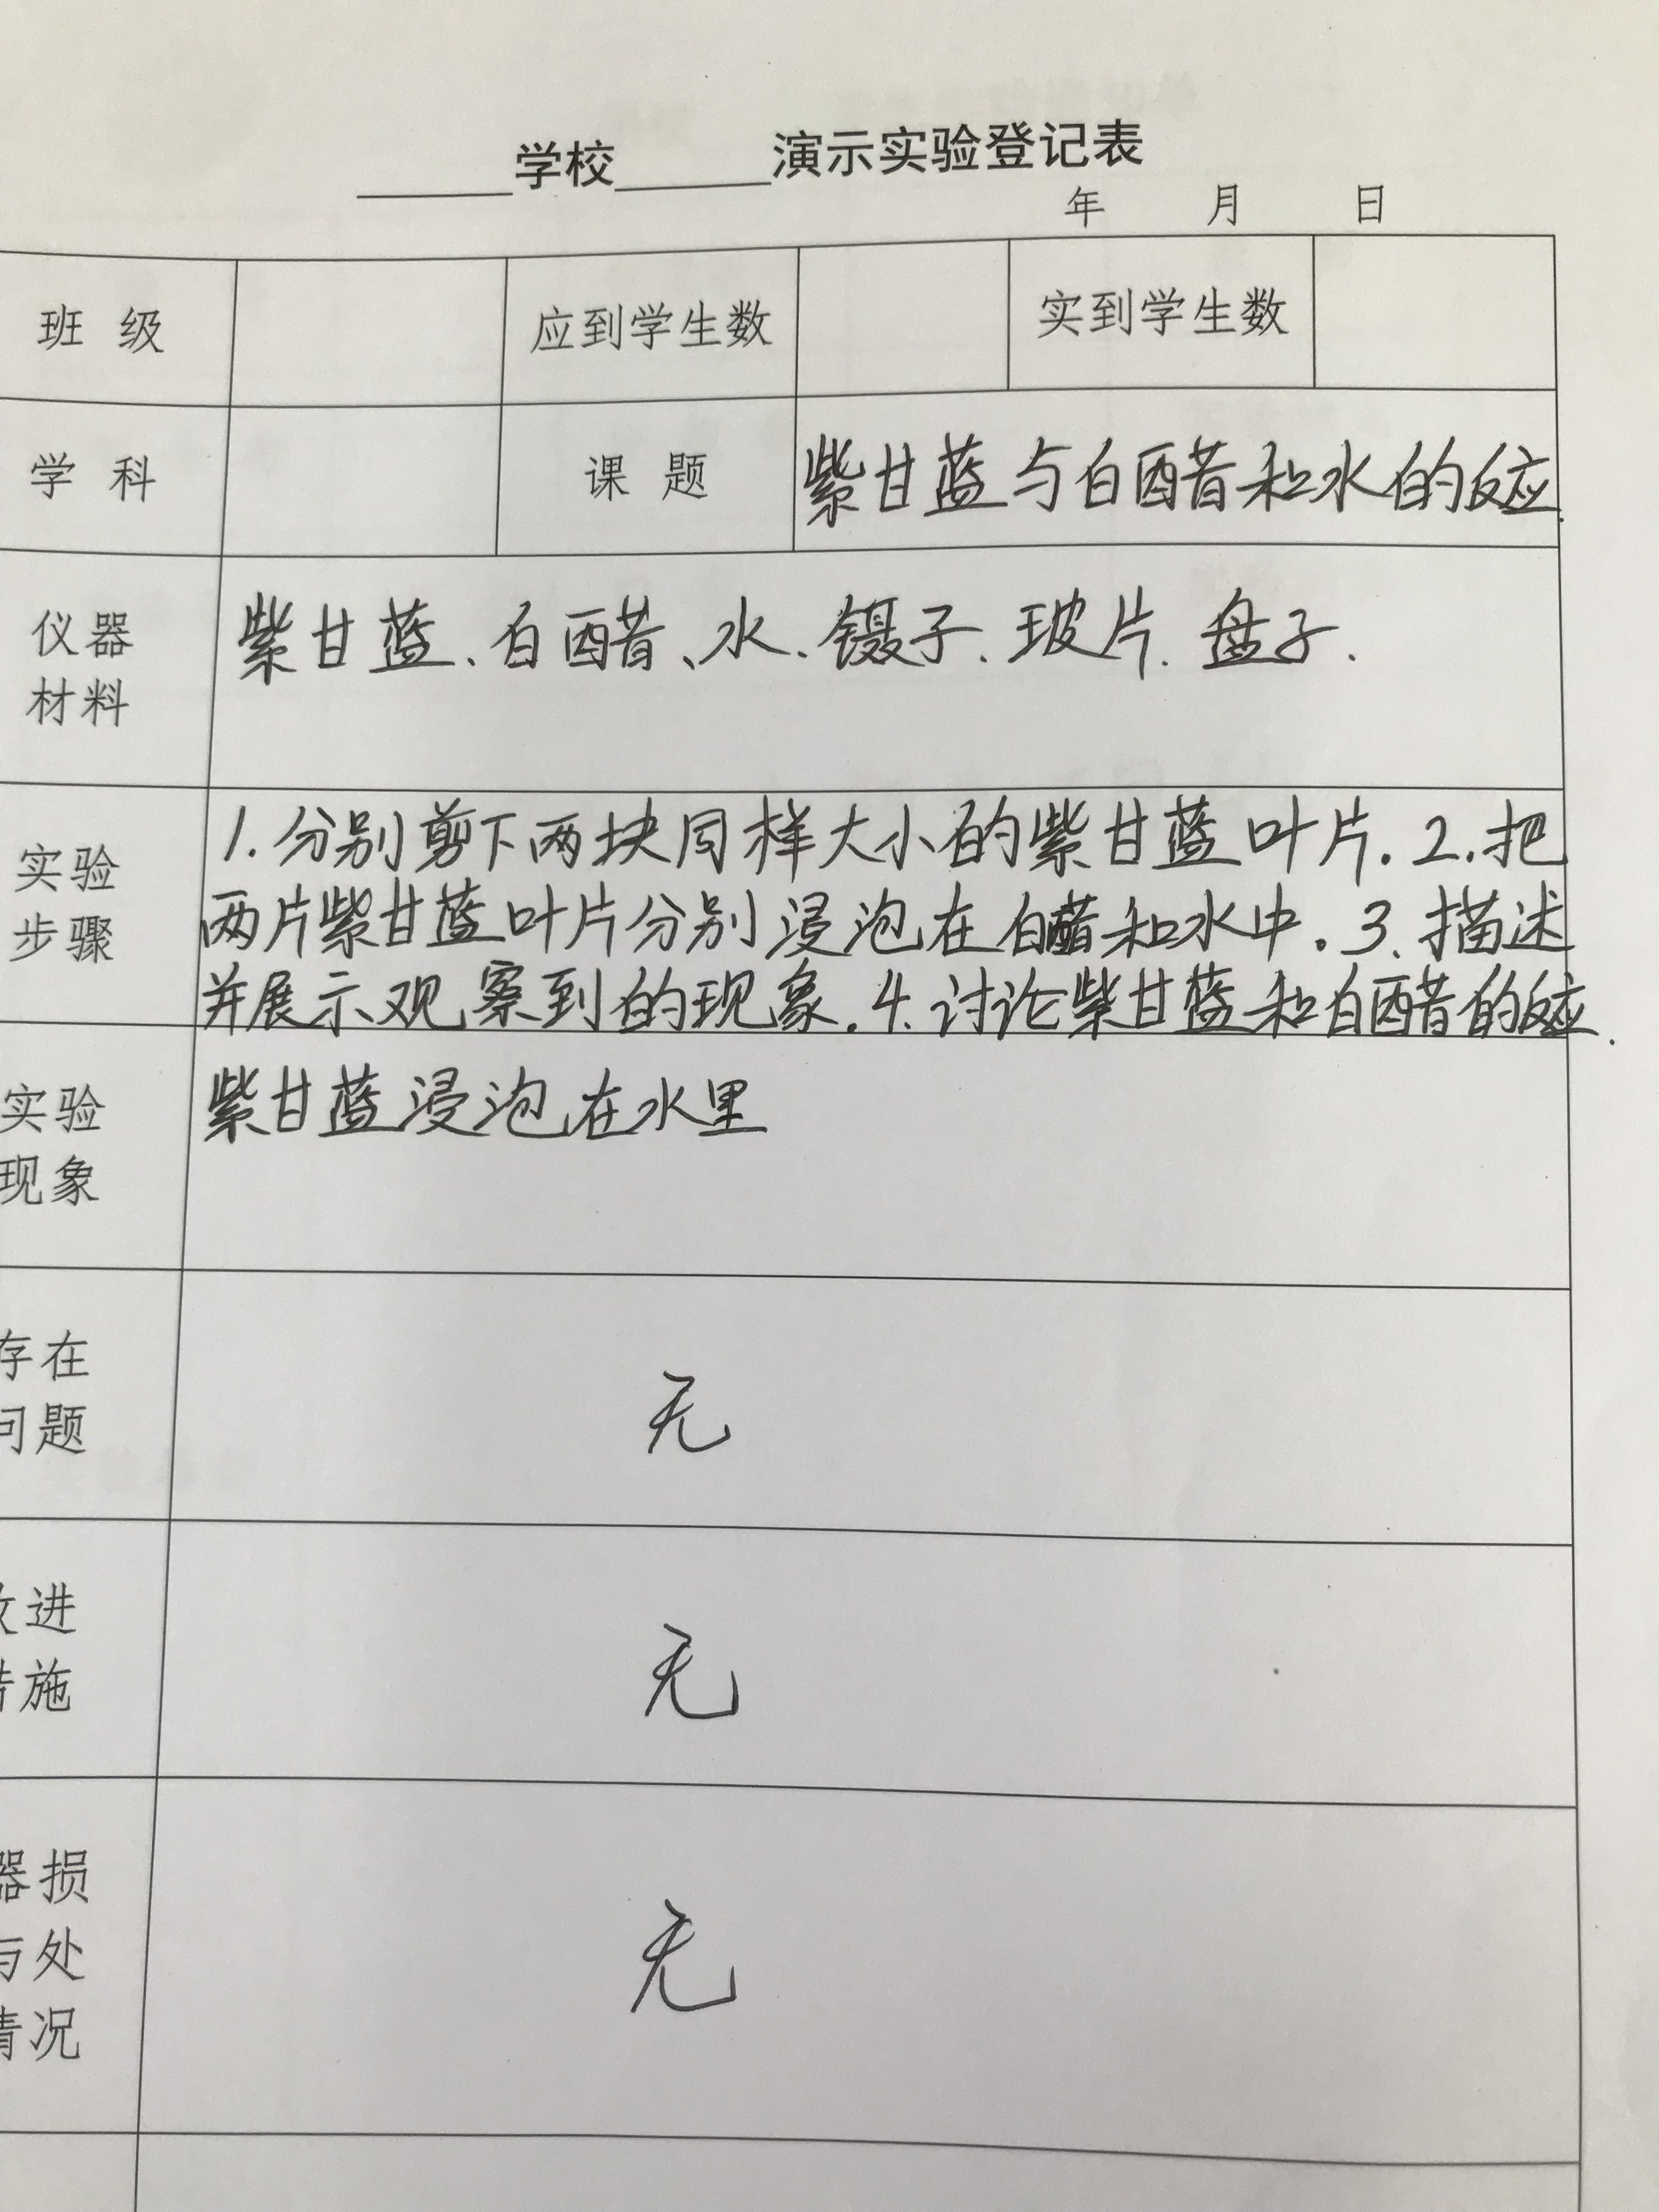 ______学校______演示实验登记表
年 月 日
班 级 应到学生数 实到学生数
学 科 课 题 紫甘蓝与白醋和水的反应.
仪器 紫甘蓝、白醋、水、镊子、玻片、盘子.
材料
1.分别剪下两块同样大小的紫甘蓝叶片.2.把
实验
两片紫甘蓝叶片分别浸泡在白醋和水中.3、描述
步骤
并展示观察到的现象.4.讨论紫甘蓝和白醋的反应.
实验 紫甘蓝浸泡在水里
现象
存在
问题 无
改进
措施 无
器损
与处 无
情况